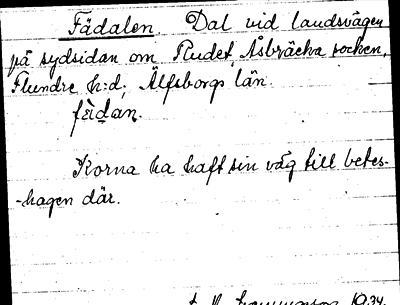 Fädalen. Dal vid landsvägen
på sydsidan om Rudet, Åsbräcka socken,
Flundre h:d, Älfsborgs län.
fädan.
Korna ha haft sin väg till betes-
-hagen där.
1934.